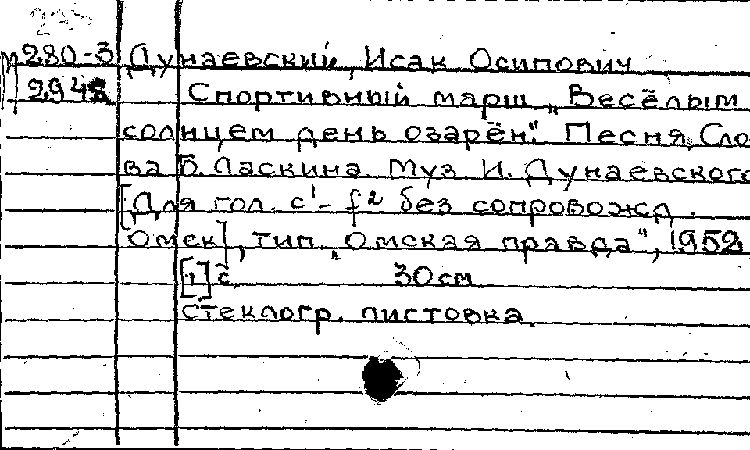 м280-3 Дунаевский, Исак Осипович
2948 Спортивный марш „Весёлым
солнцем день озарён". Песня. Сло-
ва Б. Ласкина. Муз И. Дунаевского
[Для гол. c¹-f² без сопровожд.
Омск], тип. „Омская правда", 1952
[1] с 30 см
Стеклогр. листовка.